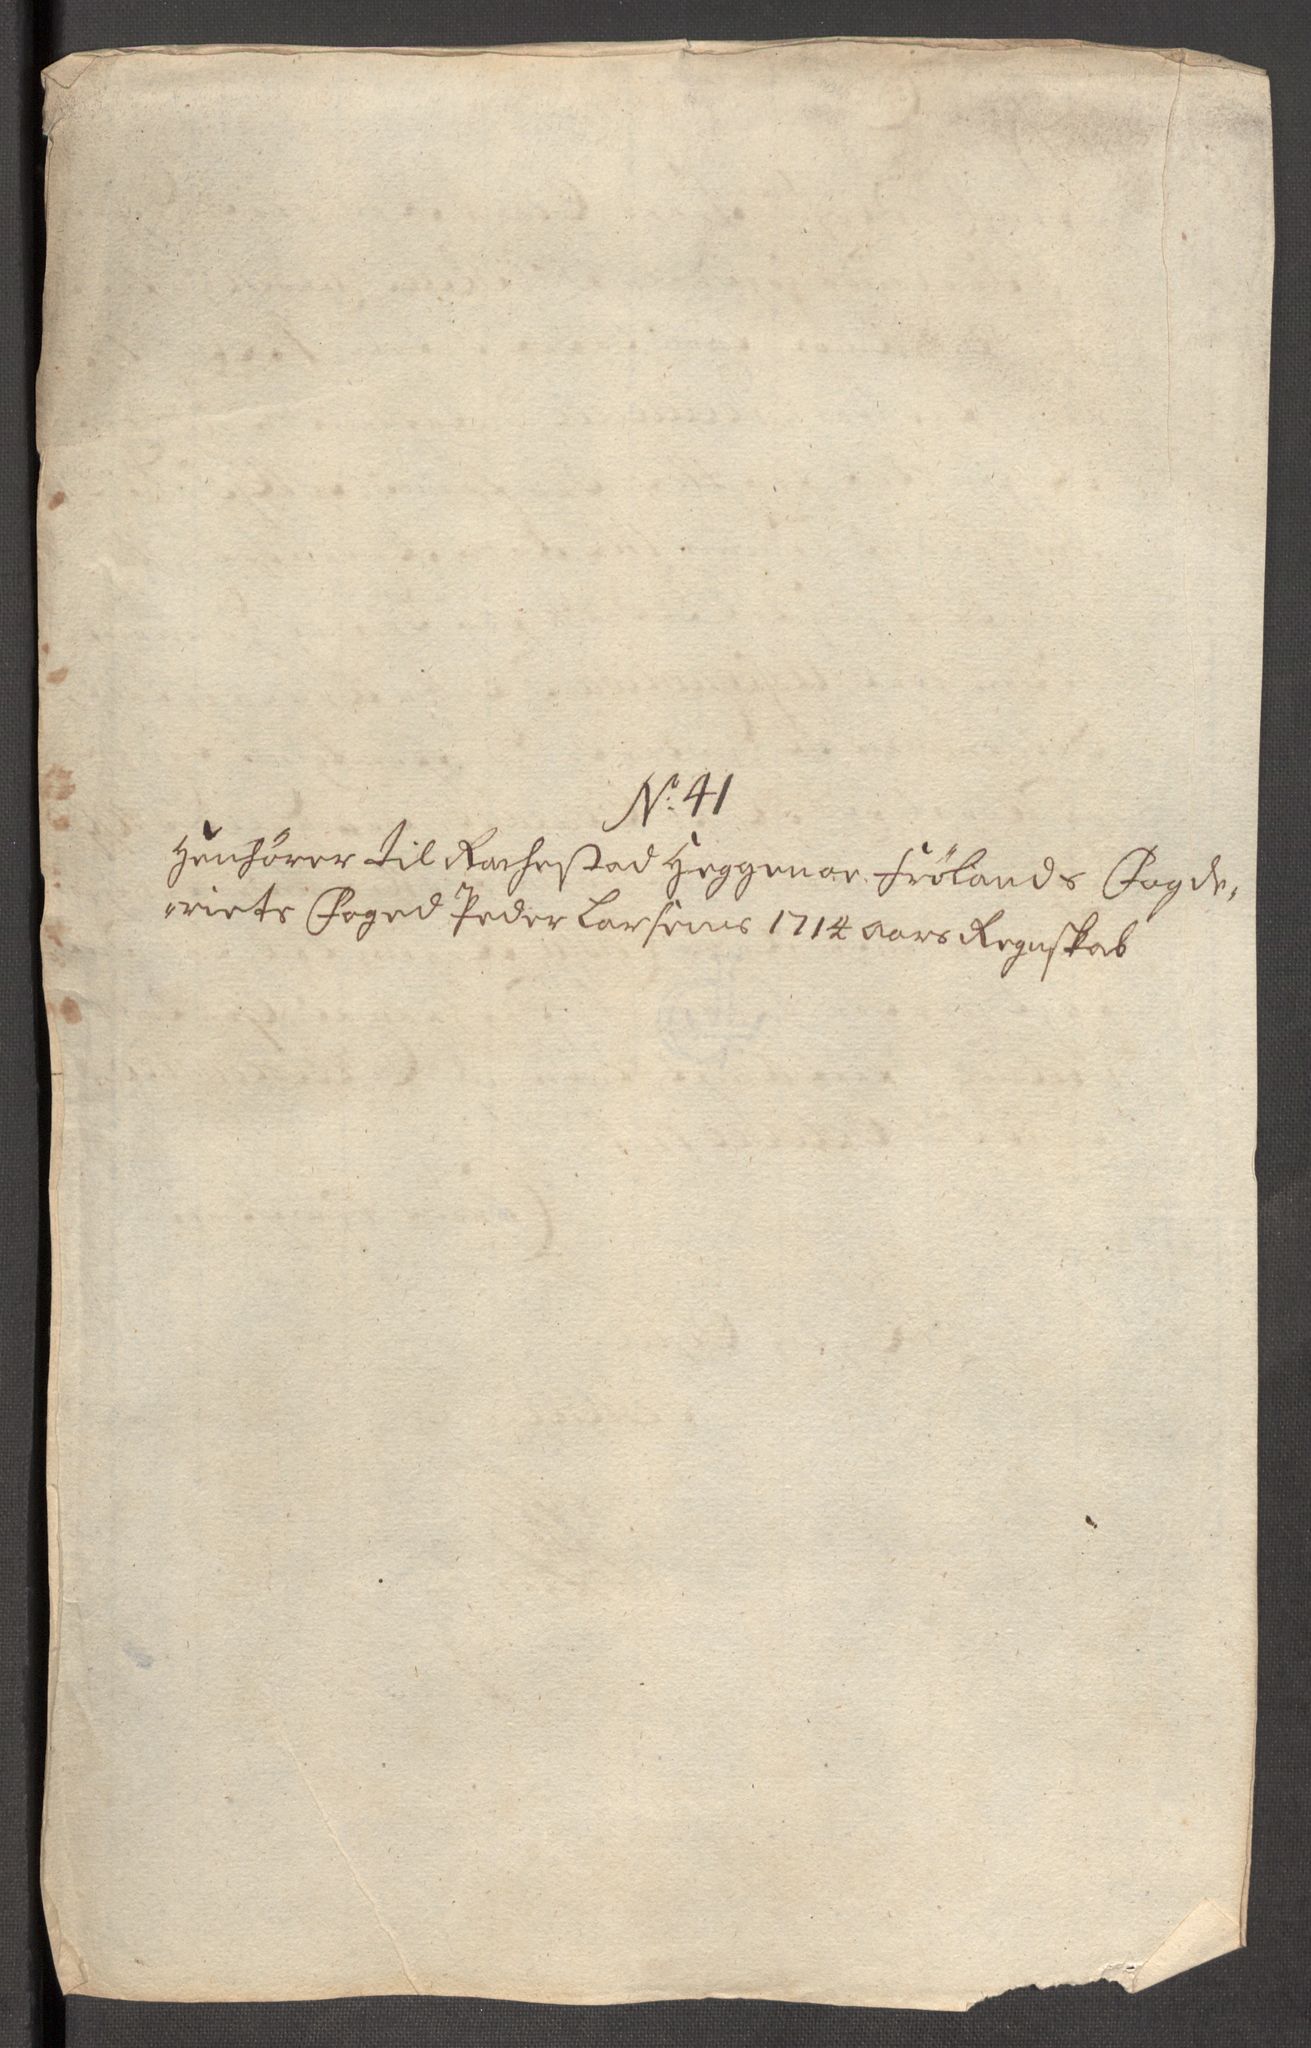 No: 41
Henhörer til Rachestad Heggen oc Frölands Fogde,
eriets Foged Peder Larsens 1714 aars Regnskab